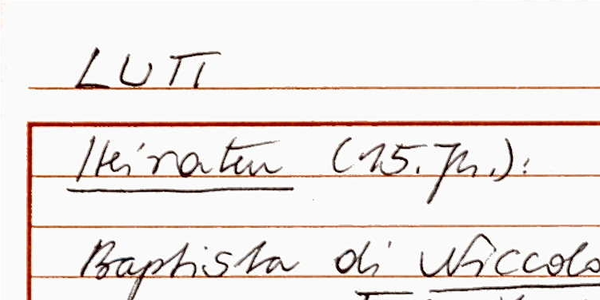 LUTI
Heiraten (15. Jh.):
Baptista di Niccolo